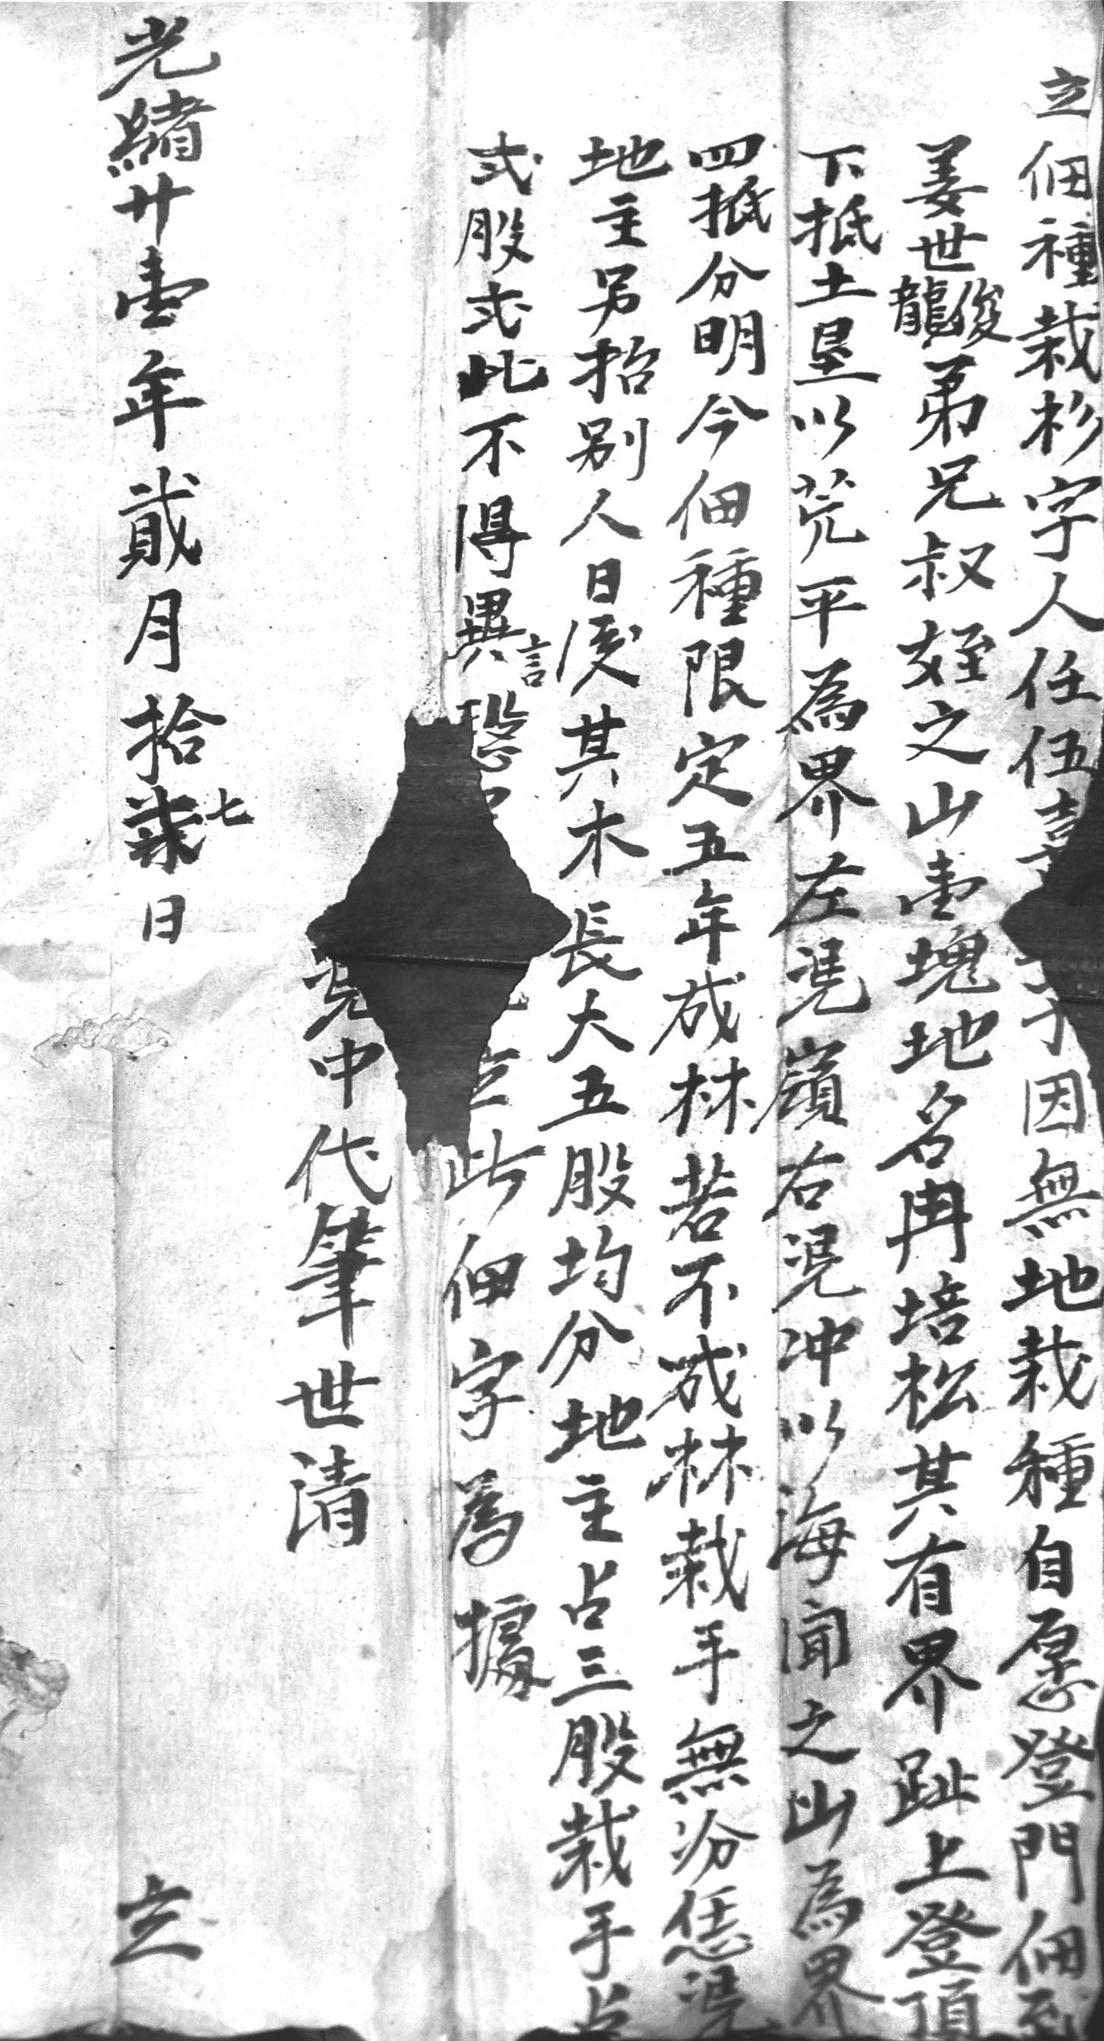 立佃種栽杉字人任伍喜子因無地栽種自愿登門佃到
姜世龍俊弟兄叔姪之山壹塊地名冉培松其有界趾上登頂
下抵土垦以荒平為界左凴嶺右凴冲以海闻之山為界
四抵分明今佃種限定五年成林若不成林栽手無汾恁凴
地主另招别人日後其木長大五股均分地主占三股栽手占
弍股弍此不得異言恐 立此佃字為據
凴中代筆世清
光緒廿壹年貳月拾柒七日 立